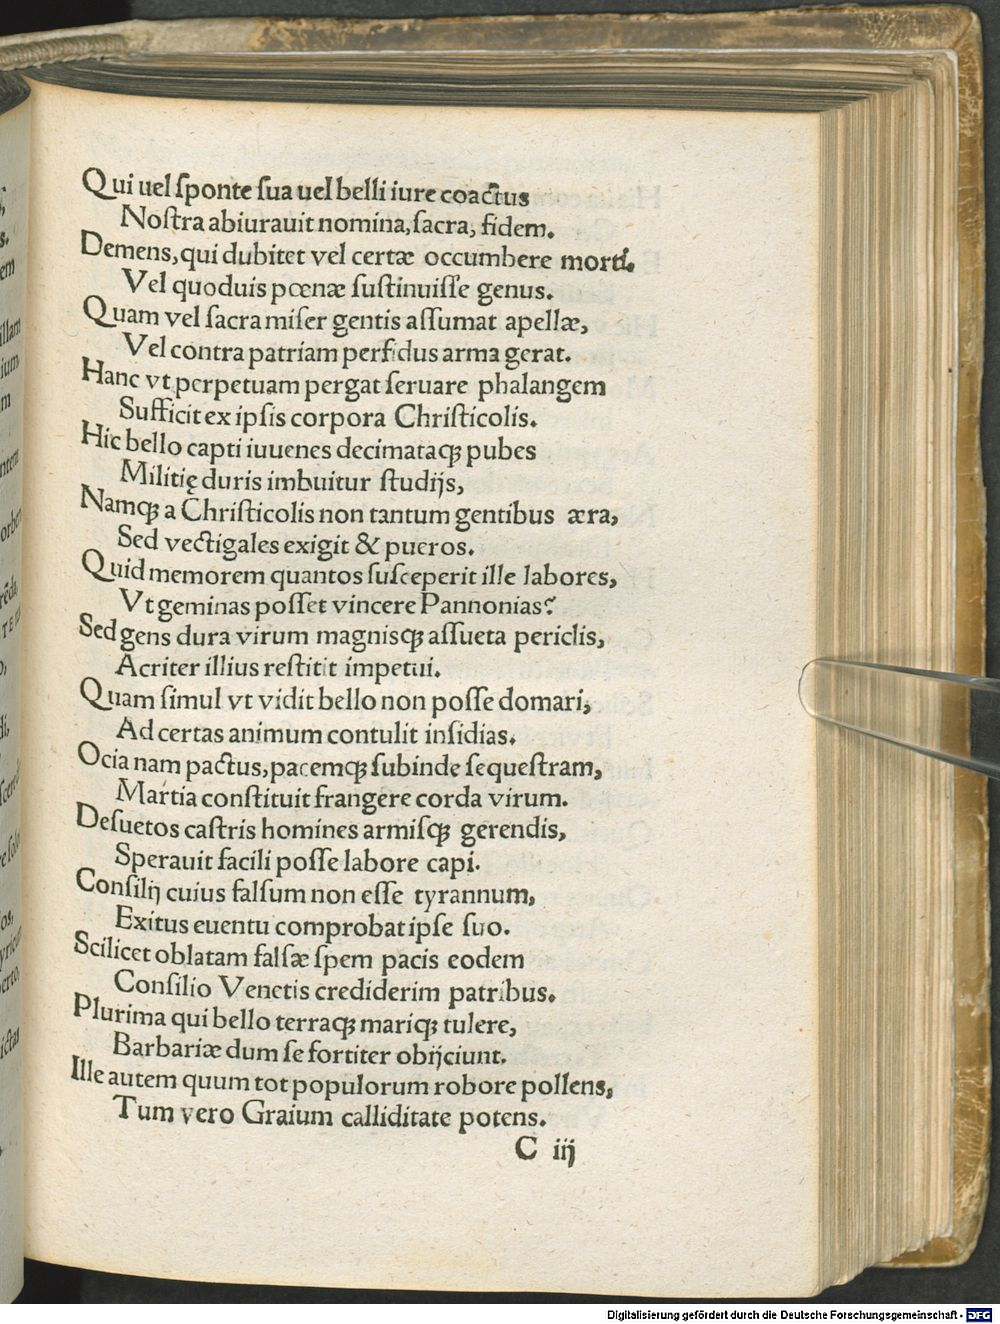 Qui uel ſponte ſua uel belli iure coactus
Noſtra abiurauit nomina, ſacra, fidem.
Demens, qui dubitet vel certæ occumbere morti.
Vel quoduis pœnæ ſuſtinuiſſe genus.
Quam vel ſacra miſer gentis aſſumat apellæ,
Vel contra patriam perfidus arma gerat.
Hanc vt perpetuam pergat ſeruare phalangem
Sufficit ex ipſis corpora Chriſticolis.
Hic bello capti iuuenes decimataqꝫ pubes
Militię duris imbuitur ſtudijs,
Namqꝫ a Chriſticolis non tantum gentibus æra,
Sed vectigales exigit & pueros.
Quid memorem quantos ſuſceperit ille labores,
Vt geminas poſſet vincere Pannonias?
Sed gens dura virum magnisqꝫ aſſueta periclis,
Acriter illius reſtitit impetui.
Quam ſimul vt vidit bello non poſſe domari,
Ad certas animum contulit inſidias.
Ocia nam pactus, pacemqꝫ ſubinde ſequeſtram,
Martia conſtituit frangere corda virum.
Deſuetos caſtris homines armiſqꝫ gerendis,
Sperauit facili poſſe labore capi.
Conſilij cuius falſum non eſſe tyrannum,
Exitus euentu comprobat ipſe ſuo.
Scilicet oblatam falſæ ſpem pacis eodem
Conſilio Venetis crediderim patribus.
Plurima qui bello terraqꝫ mariqꝫ tulere,
Barbariæ dum ſe fortiter obijciunt.
Ille autem quum tot populorum robore pollens,
Tum vero Graium calliditate potens.
C iij
Digitalisierung gefördert durch die Deutsche Forschungsgemeinschaft - DFG